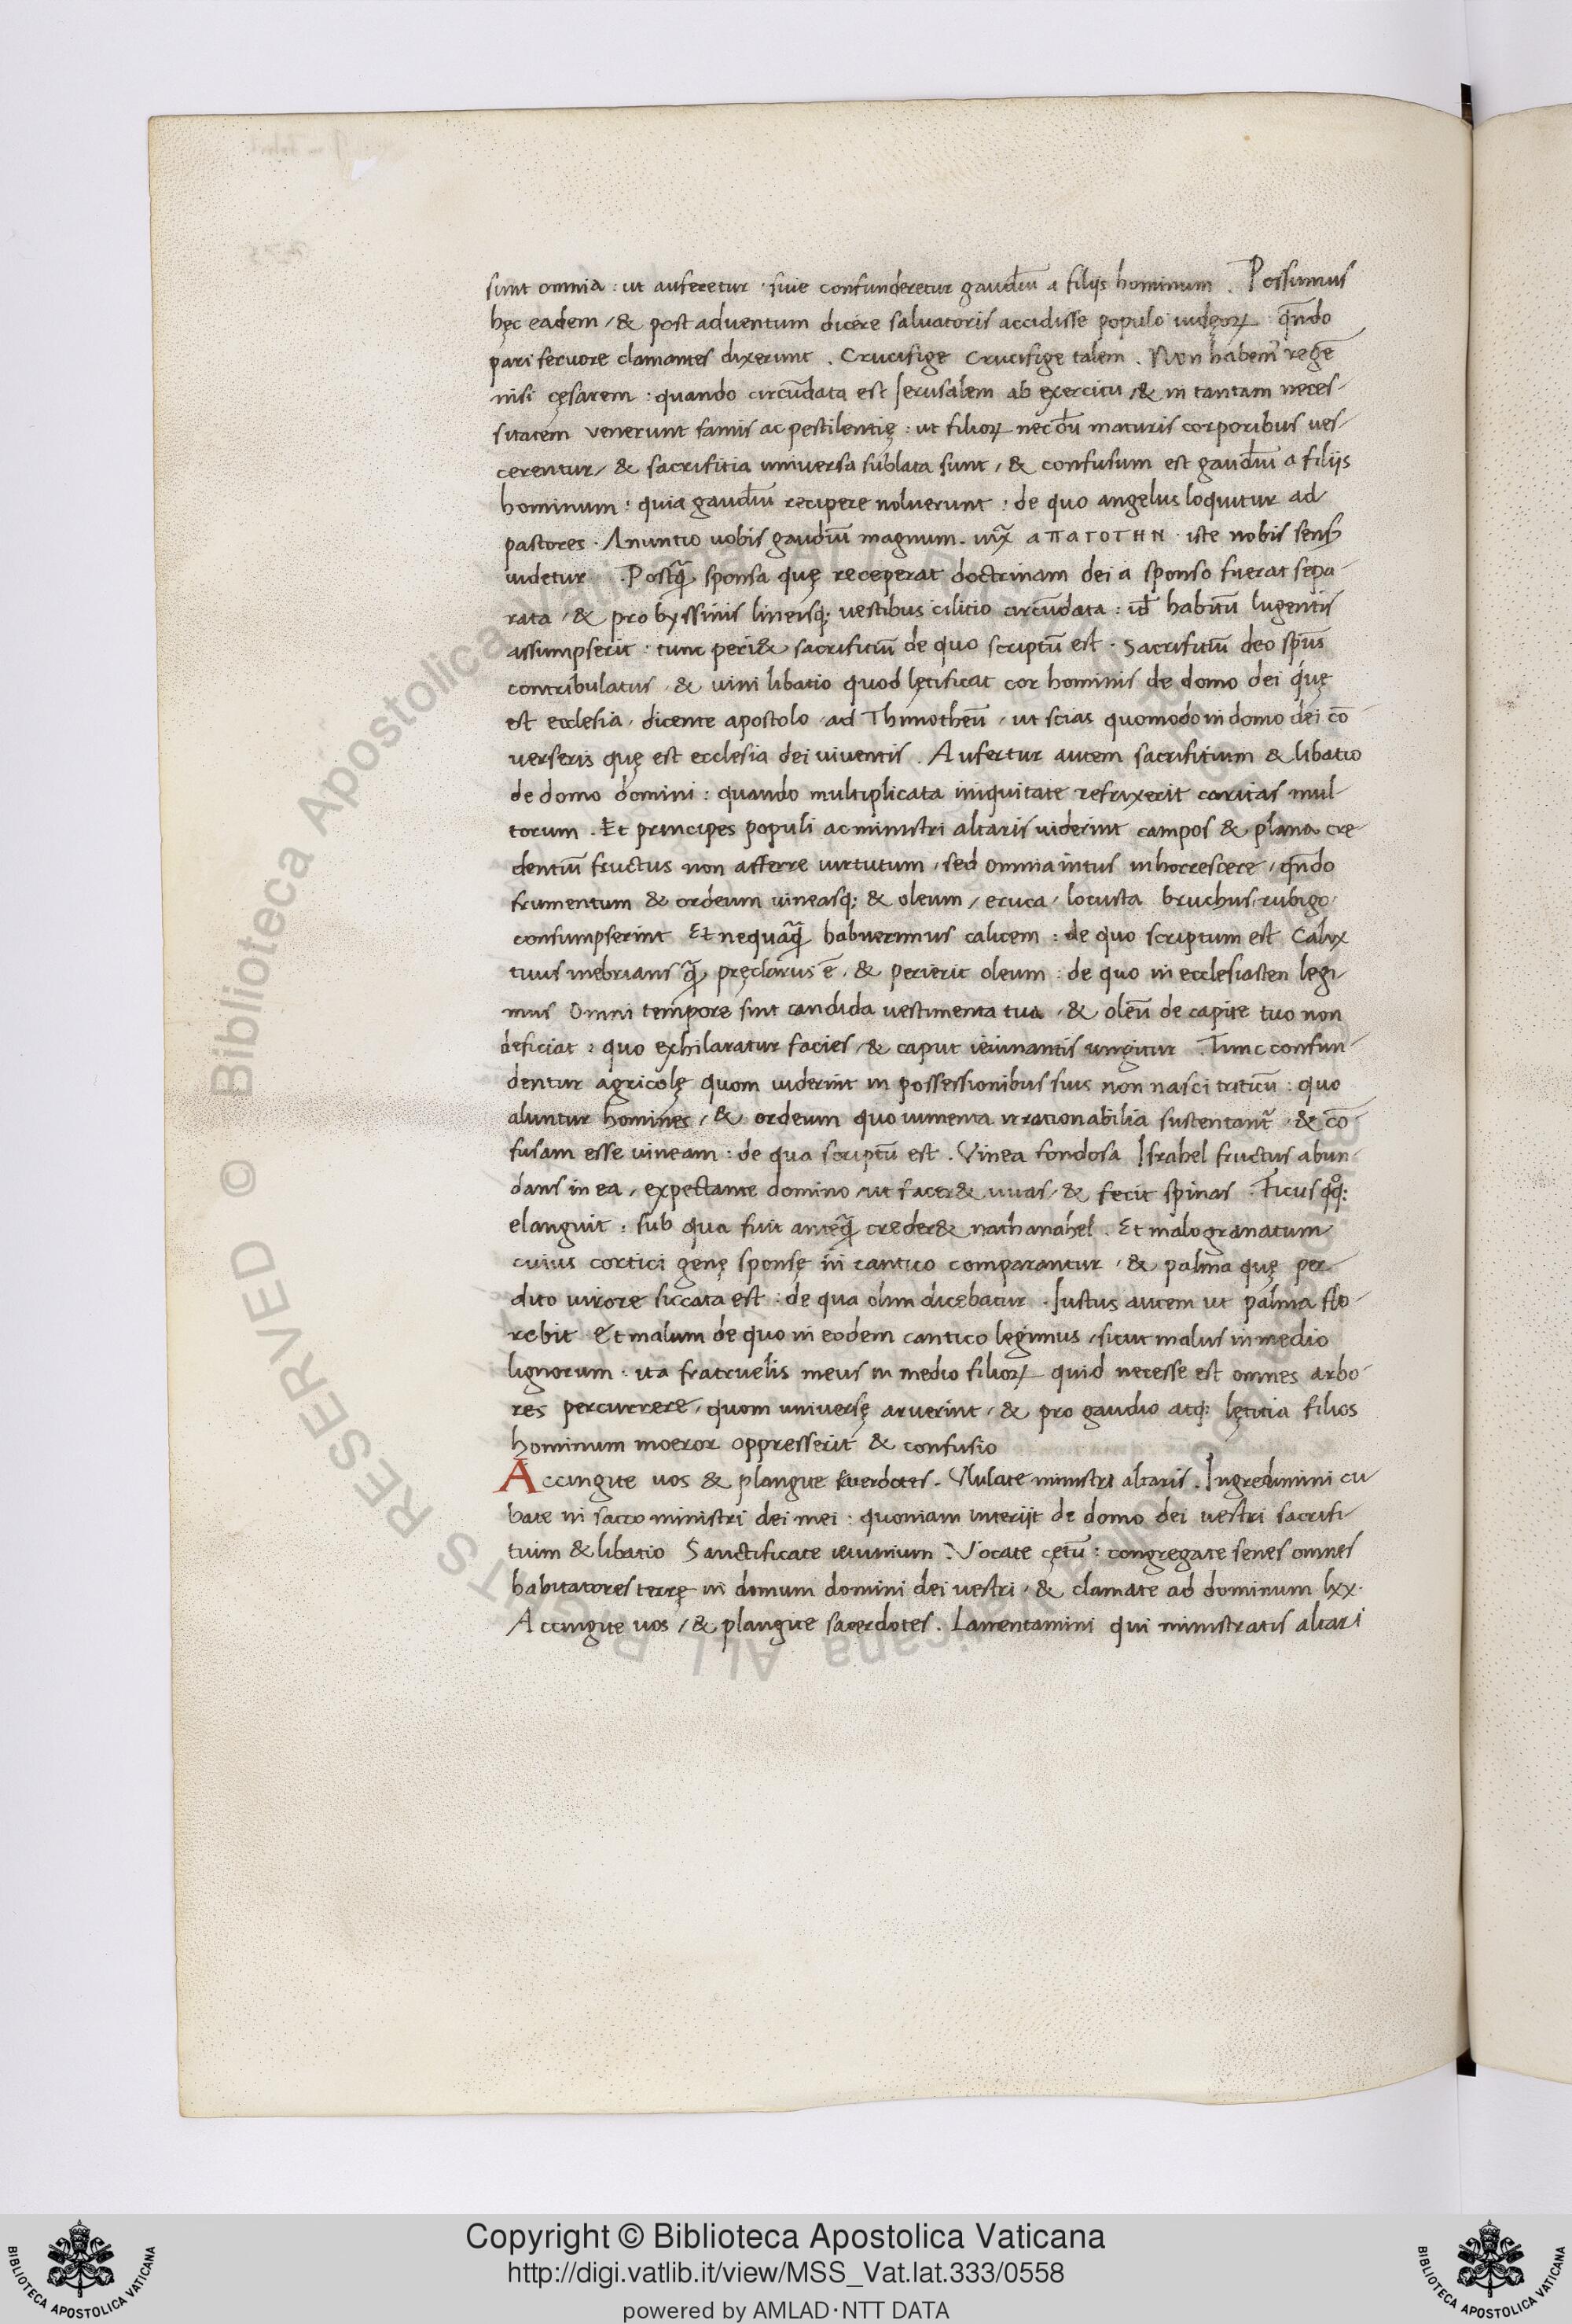 sunt omnia : ut auferetur · siue confunderetur gaudiū a filijs hominum . Possumus
hęc eadem / & post aduentum dicere saluatoris accidisse populo iudęoꝝ : qn̄do
pari feruore clamantes dixerunt . Crucifige Crucifige talem . Non habemꝰ regē
nisi cęsarem : quando circūdata est Ierusalem ab exercitu / & in tantam neces-
sitatem venerunt famis ac pestilentię : ut filioꝝ necdū maturis corporibus ues-
cerentur / & sacrifitia uniuersa sublata sunt / & confusum est gaudiū a filijs
hominum : quia gaudiū recipere noluerunt : de quo angelus loquitur ad
pastores · Anuntio uobis gaudiū magnum . αΠαΓΟΓΗΝ · iste nobis sensꝰ
uidetur . Postq̃ sponsa quę receperat doctrinam dei a sponso fuerat sepa-
rata / & pro byssinis lineisq; vestibus cilitio circūdata : id habitū lugentis
assumpserit : tunc peri& sacrifitiū de quo scriptū est · Sacrifitiū deo sp̄us
contribulatus / & uini libatio quod lętificat cor hominis de domo dei quę
est ecclesia / dicente apostolo / ad Thimotheū / ut scias quomodo in domo dei cō
uerseris quę est ecclesia dei uiuentis . Aufertur autem sacrifitium & libatio
de domo domini : quando multiplicata iniquitate refrixerit caritas mul-
torum . Et principes populi ac ministri altaris uiderint campos & plana cre-
dentiū fructus non afferre uirtutum / sed omnia intus inhorrescere / qn̄do
frumentum & ordeum uineasq; & oleum / eruca / locusta bruchus / rubigo
consumpserint Et nequaq̃ habuerimus calicem : de quo scriptum est Calix
tuus inebrians q̃ pręclarus ē / & perierit oleum : de quo in ecclesiasten legi-
mus Omni tempore sint candida uestimenta tua / & oleū de capite tuo non
deficiat : quo exhilaratur facies / & caput ieiunantis ungitur . Tunc confun-
dentur agricolę quom uiderint in possessionibus suis non nasci triticū : quo
aluntur homines / & ordeum quo iumenta irrationabilia sustentant̄ / & cō
fusam esse uineam : de qua scriptū est . Vinea fondosa Israhel fructus abun-
dans in ea / expectante domino / ut facer& uuas / & fecit spinas . Ficus qͦq;
elanguit : sub qua fuit anteq̃ creder& nathanahel . Et malogranatum
cuius cortici genę sponsę in cantico comparantur / & palma quę per-
dito uirore siccata est : de qua olim dicebatur · Iustus autem ut palma flo-
rebit Et malum de quo in eodem cantico legimus / sicut malus in medio
lignorum · ita fratruelis meus in medio filioꝝ quid necesse est omnes arbo-
res percurrere / quom uniuersę aruerint / & pro gaudio atq; lętitia filios
hominum moeror oppresserit & confusio
Accingite uos & plangite sacerdotes . Vlulate ministri altaris . Ingredimini cu-
bate in sacco ministri dei mei : quoniam interijt de domo dei uestri sacrifi-
tium & libatio Sanctificate ieiunium . Vocate cętū : congregate senes omnes
habitatores terrę in domum domini dei uestri / & clamate ad dominum lxx ·
Accingite uos / & plangite sacerdotes . Lamentamini qui ministratis altari
© Biblioteca Apostolica Vaticana ALL RIGHTS RESERVED
Copyright © Biblioteca Apostolica Vaticana
http://digi.vatlib.it/view/MSS_Vat.lat.333/0558
powered by AMLAD·NTT DATA
BIBLIOTECA APOSTOLICA VATICANA
BIBLIOTECA APOSTOLICA VATICANA